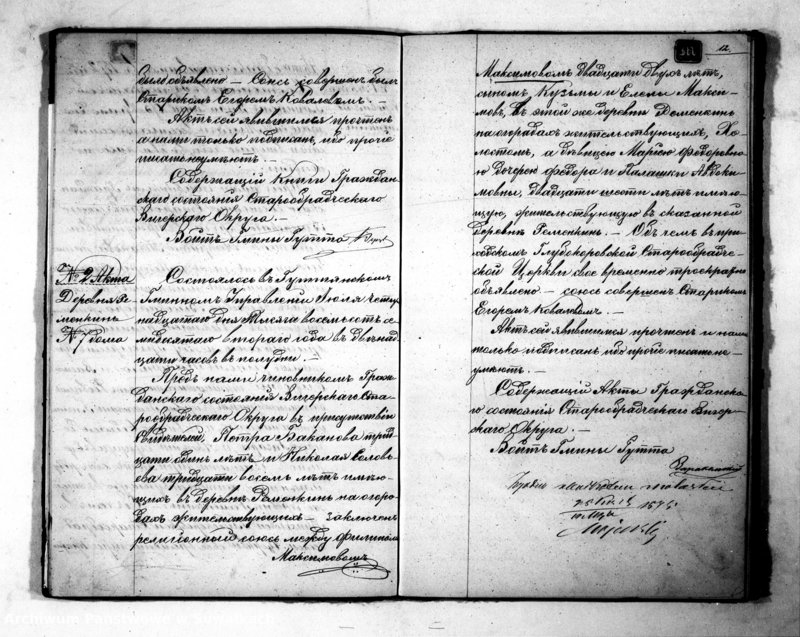 было объявлено — Союзъ совершенъ былъ
Старикомъ Егоромъ Ковалевымъ. —
Актъ сей явившимся прочтенъ
а нами только подписанъ, ибо прочіе
писать неумѣютъ —
Содержащій Книги Граждан-
скаго состоянія Старообрядческаго
Вигерскаго Округа. —
Войтъ Гмины Гутта
№ 2 Акта
Деревня Ре-
менкинь
№ 7 дома
Состоялось въ Гуттянскомъ
Гминномъ Управленіи Іюля четыр-
надцатаго дня Тысяча восемьсотъ се-
мьдесятаго втораго года въ двѣнад-
цать часовъ въ полудни. —
Предъ нами чиновникомъ Граж-
данскаго состоянія Вигерскаго Ста-
рообрядческаго Округа въ присутствіи
Свидѣтелей, Петра Баканова трид-
цати одинъ лѣтъ и Николая Соловь-
ева тридцати восемь лѣтъ имѣю-
щихъ въ деревнѣ Ременкинь на огоро-
дахъ жительствующихъ — заключенъ
религіозный союзъ между Филиппомъ
Максимовымъ
12.
Максимовомъ двадцати двухъ лѣтъ,
сыномъ Кузьмы и Елены Макси-
мовъ, въ этой же деревни Ременкинь
на огородахъ жительствующихъ, Хо-
лостомъ, а дѣвицею Маріею Федоровно-
ю дочерью Федора и Палашки Авдоки-
мовны, двадцати шести лѣтъ имѣю-
щую, жительствующую въ сказанной
деревнѣ Ременкинь. — Объ чемъ въ при-
ходскомъ Глубокоровской Старообрядче-
ской Церкви свое временно троекратно
объявлено — союзъ совершенъ Старикомъ
Егоромъ Ковалевымъ. —
Актъ сей явившимся прочтенъ и нами
только подписанъ ибо прочіе писать не-
умѣютъ. —
Содержащій Акты Гражданска-
го состоянія Старообрядческаго Вигер-
скаго Округа. —
Войтъ Гмины Гутта
1873
Archiwum Państwowe w Suwałkach